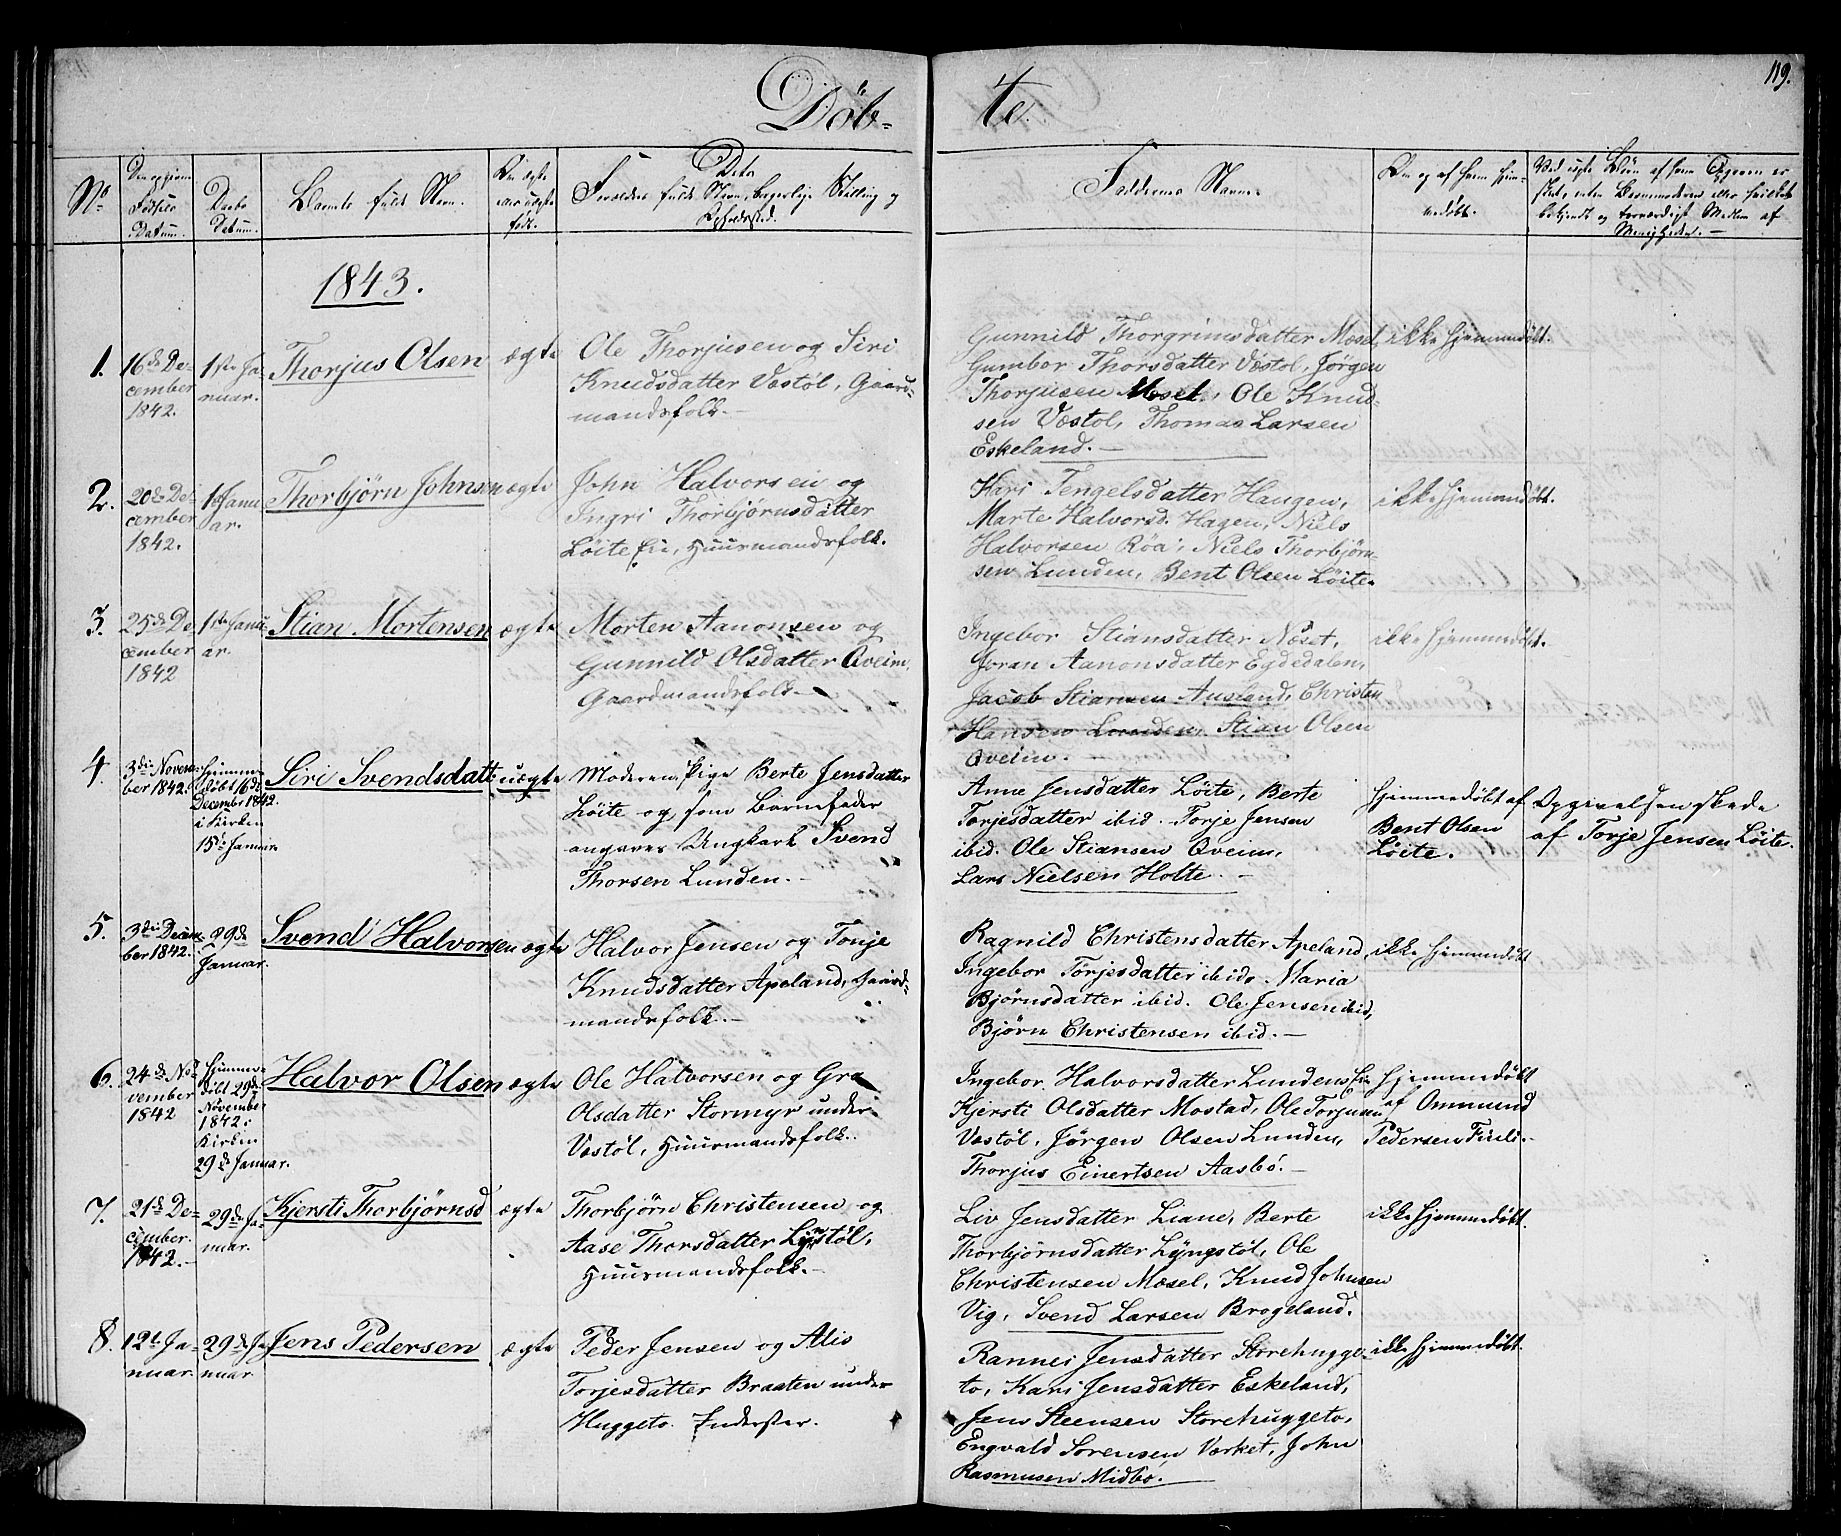 119.
Döb-
te.
No
Den og givne Fødsels Datum.
Daabs Datum.
Barnets fulde Navn.
Om ægte eller uægte født.
Dets
Forældres fulde Navn, borgerlige Stilling og
Opholdssted.
Faddernes Navne.
Om og af hvem hjem-
medøbt.
Ved uægte Børn af hvem Opgiven er
skeet, uden Besvimedere eller hvilket
bekjendt og troværdigt Medlem af
Menigheden. —
1843.
1.
16de De-
cember
1842.
1ste Ja-
nuar.
Thorjus Olsen
ægte
Ole Thorjusen og Siri
Knudsdatter Væstöl, Gaard-
mandsfolk. —
Gunnild Thorgrimsdatter Mosel
Gumbor Thorsdatter Væstöl, Jörgen
Thorjusen Mosel, Ole Knud-
sen Væstöl, Thomas Larsen
Eskeland. —
ikke hjemmedöbt.
2.
20de De-
cember
1842.
1ste Janu-
ar.
Thorbjörn Johnsen
ægte
John Halvorsen og
Ingri Thorbjörnsdatter
Löite Eie, Huusmandsfolk.
Kari Tengelsdatter Haugen,
Marte Halvorsd. Hagen, Niels
Halvorsen Röa, Niels Thorbjörn-
sen Lunden, Bent Olsen Löite.
ikke hjemmedöbt.
3.
25de De-
cember
1842
1ste Janu-
ar.
Stian Mortensen
ægte
Morten Aanonsen og
Gunnild Olsdatter Qveim,
Gaardmandsfolk. —
Ingebor Stiansdatter Næset,
Joran Aanonsdatter Egdedalen,
Jacob Stiansen Ausland, Christen
Hansen Lunden, Stian Olsen
Qveim. —
ikke hjemmedöbt.
4.
3die Novem-
ber 1842.
hjemme-
döbt 16de
December 1842.
i Kirken
15de Januar
Siri Svendsdatt.
uægte
Moderen, Pige Berte Jensdatter
Löite og som Barnefader
angaves Ungkarl Svend
Thorsen Lunden. —
Anne Jensdatter Löite, Berte
Torjesdatter ibid. Torje Jensen
ibid. Ole Stiansen Qveim,
Lars Nielsen Holte. —
hjemmedöbt af
Bent Olsen
Löite.
Opgivelsen skede
af Torje Jensen Löite.
5.
3die Decem-
ber 1842.
29de
Januar.
Svend Halvorsen
ægte
Halvor Jensen og Tonje
Knudsdatter Apeland, Gaard-
mandsfolk. —
Ragnild Christensdatter Apeland,
Ingebor Torjesdatter ibid. Maria
Björnsdatter ibid. Ole Jensen ibid,
Björn Christensen ibid. —
ikke hjemmedöbt
6.
24de No-
vember
1842
hjemme-
döbt 29de
November
1842 i
Kirken
29de Januar.
Halvor Olsen
ægte
Ole Halvorsen og Gro
Olsdatter Stormyr under
Væstöl, Huusmandsfolk.
Ingebor Halvorsdatter Lundens Eie
Kjersti Olsdatter Mostad, Ole Torjusen
Væstöl, Jörgen Olsen Lunden,
Thorjus Einertsen Aasbö. —
hjemmedöbt
af Ommund
Pedersen Fiuli.
7.
21de De-
cember.
1842. —
29de Ja-
nuar.
Kjersti Thorbjörnsd
ægte
Thorbjörn Christensen og
Aase Thorsdatter Lyngstöl,
Huusmandsfolk. —
Liv Jensdatter Liane, Berte
Thorbjörnsdatter Lyngstöl, Ole
Christensen Mosel, Knud Johnsen
Vig, Svend Larsen Brogeland.
ikke hjemmedöbt.
8.
12te Ja-
nuar
29de Ja-
nuar
Jens Pedersen
ægte
Peder Jensen og Alis
Torjesdatter Braaten under
Huggeto. Inderster.
Rannei Jensdatter Storehugge-
to, Kari Jensdatter Eskeland,
Jens Steensen Storehuggeto,
Engvald Sorensen Værket, John
Rasmusen Midbö. —
ikke hjemmedöbt.